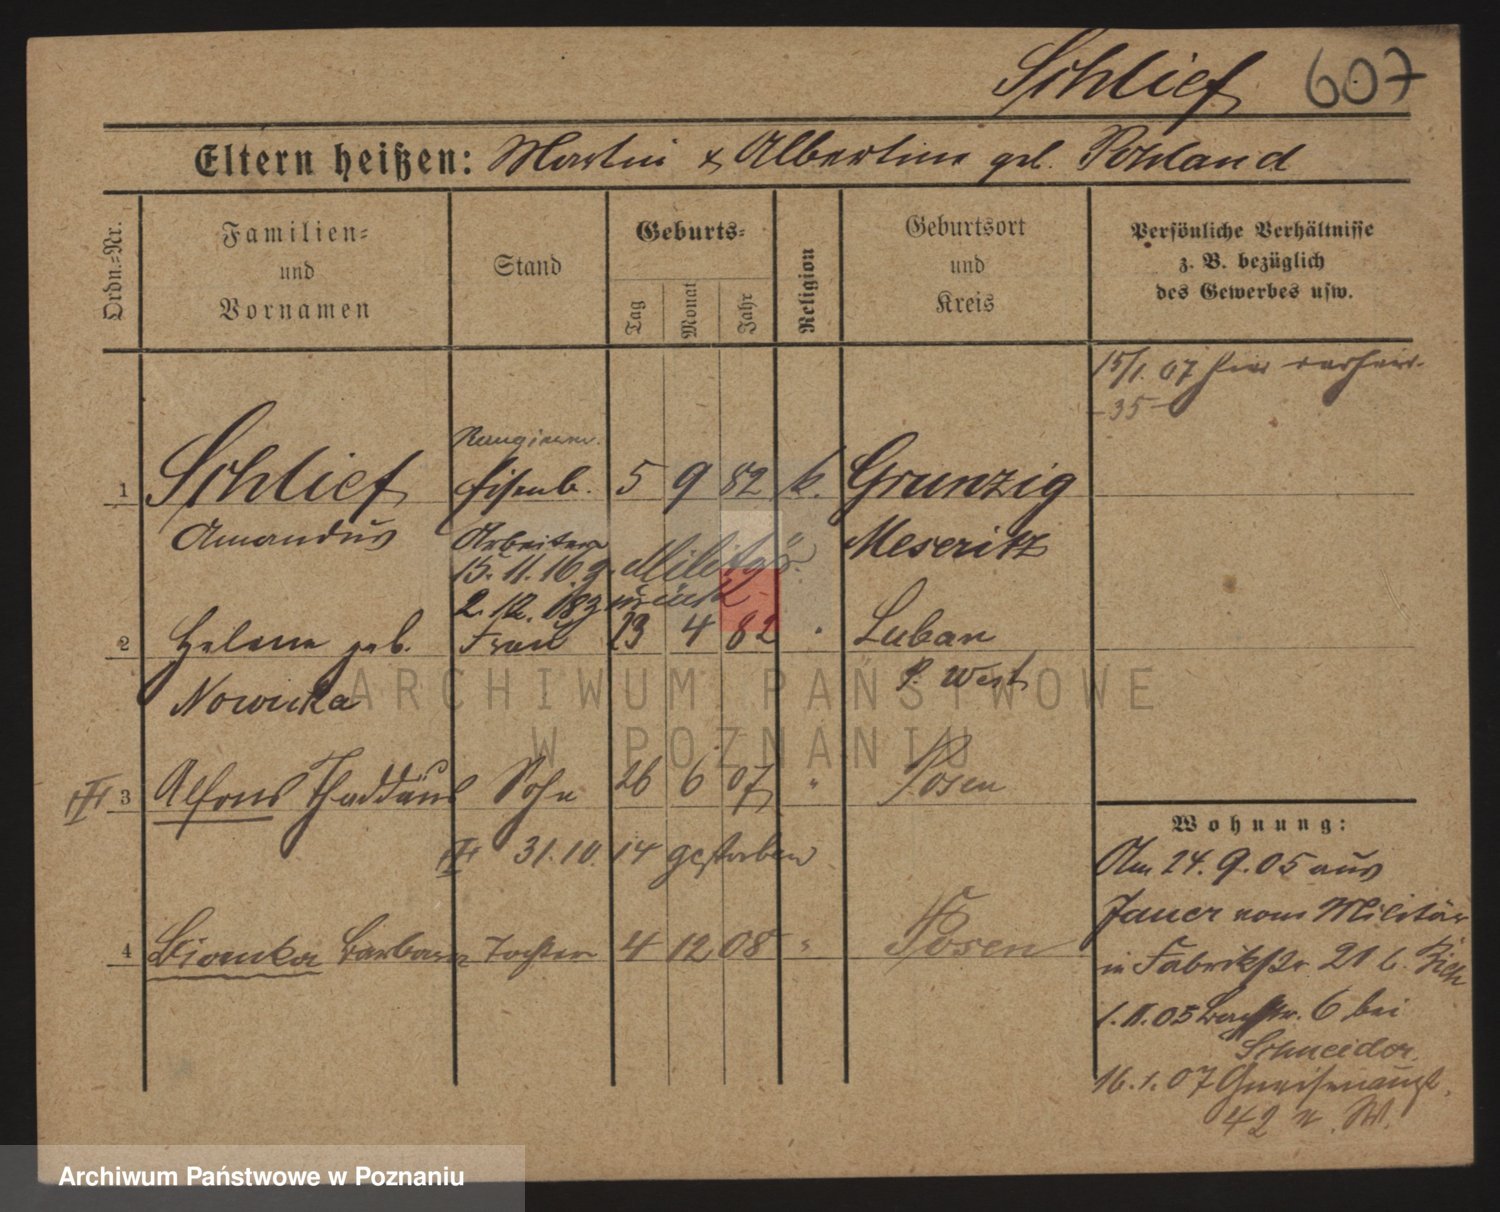 Schlief 607
Eltern heißen: Martin & Albertine geb. Pohland
Ordn.-Nr.
Familien-
und
Vornamen
Stand
Geburts-
Tag
Monat
Jahr
Religion
Geburtsort
und
Kreis
Persönliche Verhältnisse
z. B. bezüglich
des Gewerbes usw.
15/1. 07 hier verheir.
-35-
Rangierer
1 Schlief Eisenb. 5 9 82 k. Grunzig
Amandus Arbeiter Meseritz
15. 11. 16 z. Militär
2. 12. 18 zurück
2 Helene geb. Frau 23 4 82 " Luban
Nowicka P. West
III 3 Alfons Thaddäus Sohn 26 6 07 " Posen
III 31.10. 14 gestorben
4 Bianka Barbara Tochter 4 12 08 " Posen
Wohnung:
Am 24. 9. 05 aus
Jauer vom Militär
in Fabrikstr. 21 b.
1. 11. 05 6 bei
Schneider
16. 1. 07 Gneisenaustr.
42 n. W.
ARCHIWUM PAŃSTWOWE
W POZNANIU
Archiwum Państwowe w Poznaniu